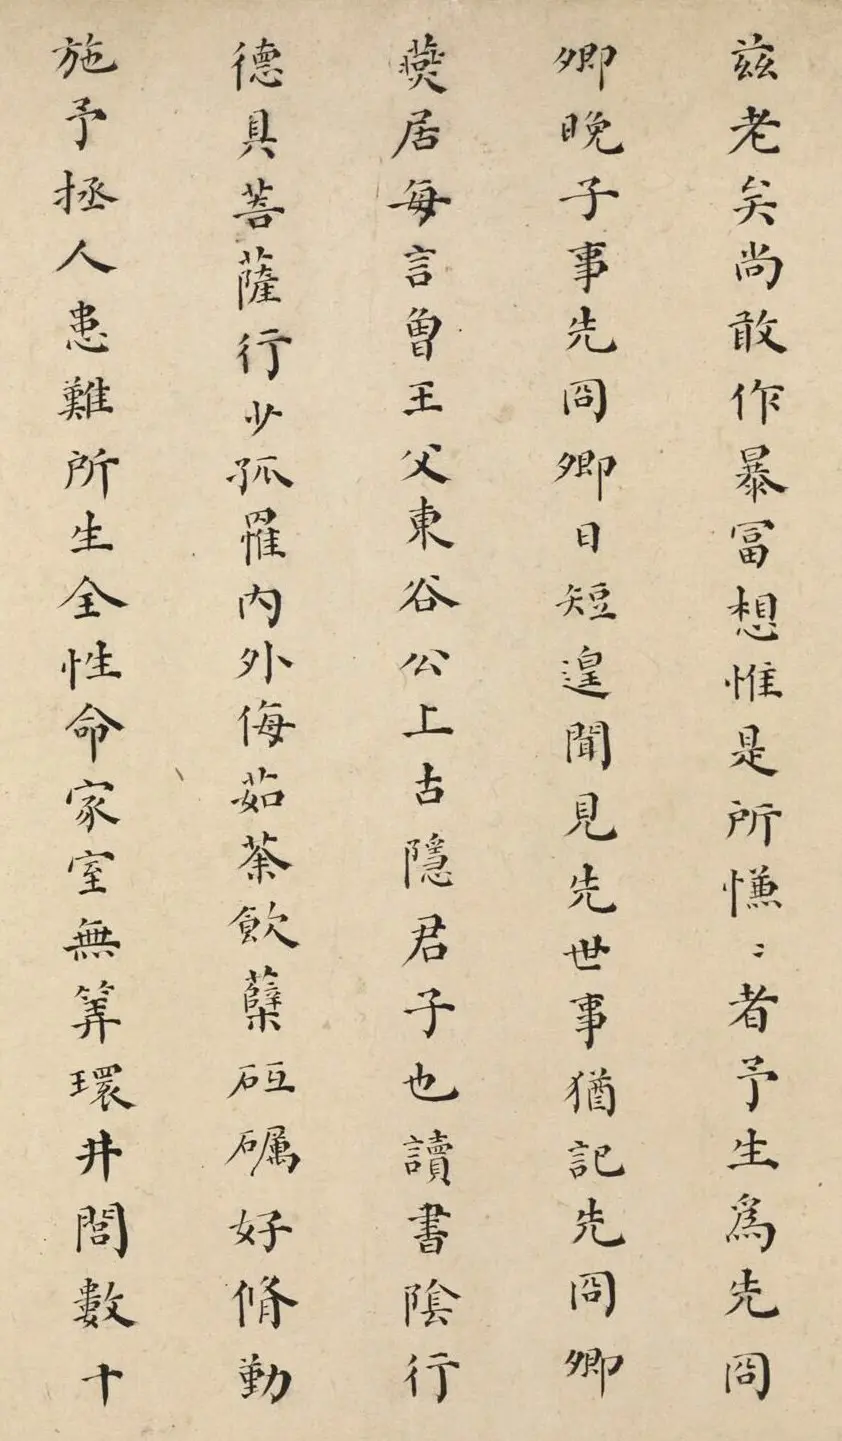 茲老矣尚敢作暴富想惟是所慊〻者予生爲先冏
卿晚子事先冏卿日短遑聞見先世事猶記先冏卿
燕居每言曾王父東谷公上古隱君子也讀書陰行
德具菩薩行少孤罹內外侮茹荼飲蘗砥礪好脩勤
施予拯人患難所生全性命家室無筭環井閭數十